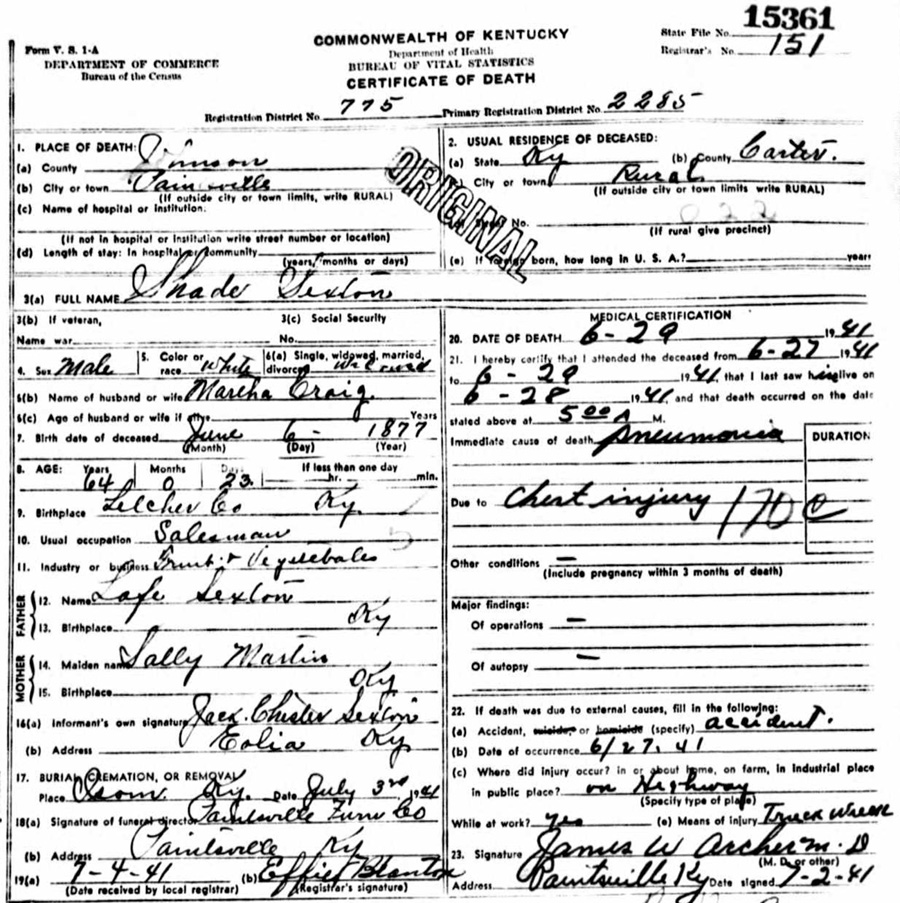 15361
Form V. S. 1-A
DEPARTMENT OF COMMERCE
Bureau of the Census
COMMONWEALTH OF KENTUCKY
Department of Health
BUREAU OF VITAL STATISTICS
CERTIFICATE OF DEATH
State File No.
Registrar's No. 151
Registration District No. 775 Primary Registration District No. 2285
ORIGINAL
1. PLACE OF DEATH:
(a) County
(b) City or town
(If outside city or town limits, write RURAL)
(c) Name of hospital or institution:
(If not in hospital or institution write street number or location)
(d) Length of stay: In hospital or community
(years, months or days)
2. USUAL RESIDENCE OF DECEASED:
(a) State Ky (b) County Carter.
City or town Rural
(If outside city or town limits, write RURAL)
No. 022
(If rural give precinct)
(e) If born, how long in U. S. A.? years
3(a) FULL NAME Shade Sexton
3(b) If veteran,
Name war
3(c) Social Security
No.
4. Sex Male 5. Color or race White 6(a) Single, widowed, married, divorced Widowed
6(b) Name of husband or wife Martha Craig.
6(c) Age of husband or wife if alive Years
7. Birth date of deceased June 6 - 1877
(Month) (Day) (Year)
8. AGE: Years Months Days If less than one day
64 0 23 hr. min.
9. Birthplace Letcher Co Ky
10. Usual occupation Salesman
11. Industry or business Fruit & Vegetebales
FATHER
12. Name Lafe Sexton
13. Birthplace Ky
MOTHER
14. Maiden name Sally Martin
15. Birthplace Ky
16(a) Informant's own signature Jack Chester Sexton
(b) Address Eolia Ky
17. BURIAL, CREMATION, OR REMOVAL
Place Isom Ky. Date July 3rd 1941
18(a) Signature of funeral director Paintsville Furn Co
(b) Address Paintsville Ky
19(a) 7-4-41 (b) Effie Blanton
(Date received by local registrar) (Registrar's signature)
MEDICAL CERTIFICATION
20. DATE OF DEATH 6-29 1941
21. I hereby certify that I attended the deceased from 6-27 1941
to 6-29 1941 that I last saw him alive on
6-28 1941 and that death occurred on the date
stated above at 5 00 A M.
Immediate cause of death pneumonia
DURATION
Due to Chest injury 170 c
Other conditions —
(Include pregnancy within 3 months of death)
Major findings:
Of operations —
Of autopsy —
22. If death was due to external causes, fill in the following:
(a) Accident, suicide, or homicide (specify) accident.
(b) Date of occurrence 6/27.41
(c) Where did injury occur? in or about home, on farm, in industrial place
in public place? on Highway
(Specify type of place)
While at work? yes (e) Means of injury Truck wreck
23. Signature James W Archer M.D
(M. D. or other)
Address Paintsville Ky Date signed 7-2-41